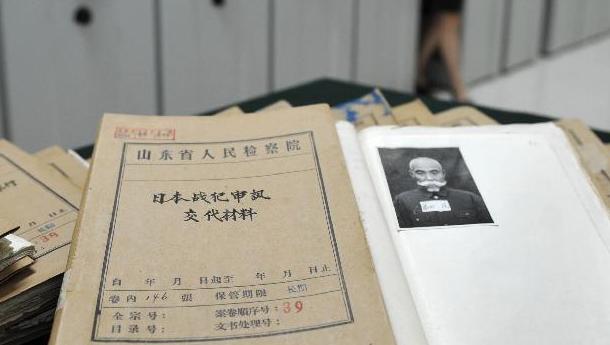 山东省人民检察院
日本战犯审讯
交代材料
自 年 月 日起至 年 月 日止
卷内 146 张 保管期限 长期
全宗号： 案卷顺序号：39
目录号： 文书处理号：
39